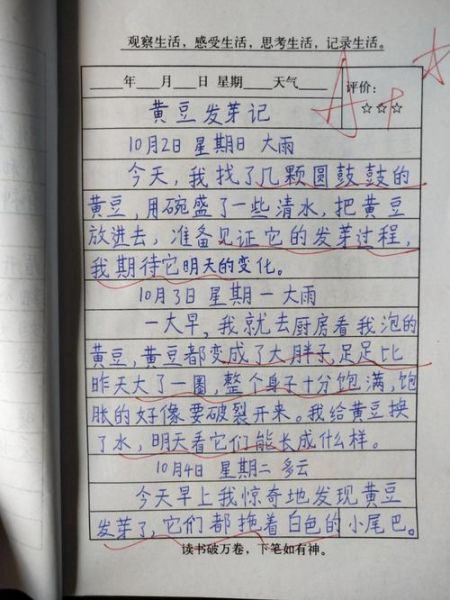 观察生活，感受生活，思考生活，记录生活。
____年____月____日 星期____天气____ 评价：
☆☆☆
黄豆发芽记
10月2日 星期日 大雨
今天，我找了几颗圆鼓鼓的
黄豆，用碗盛了一些清水，把黄豆
放进去，准备见证它的发芽过程，
我期待它明天的变化。
10月3日 星期一 大雨
一大早，我就去厨房看我泡的
黄豆，黄豆都变成了大胖子，足足比
昨天大了一圈，整个身子十分饱满，饱
胀的好像要破裂开来。我给黄豆换
了水，明天看它们能长成什么样。
10月4日 星期二 多云
今天早上我惊奇地发现黄豆
发芽了，它们都拖着白色的小尾巴。
读书破万卷，下笔如有神。